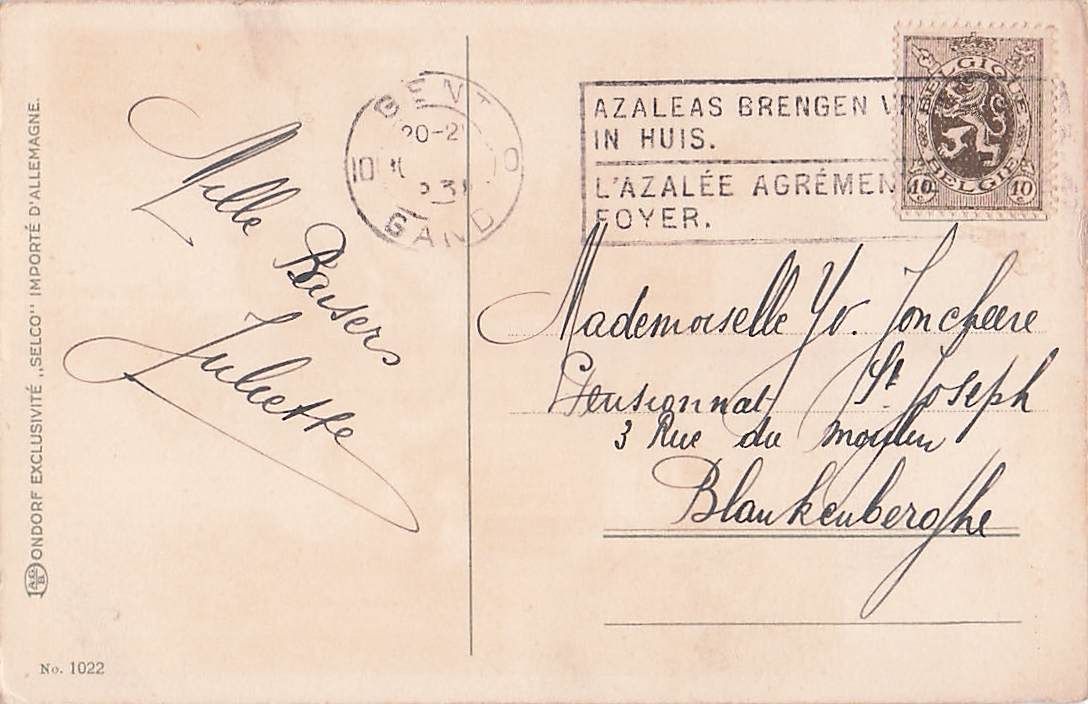 AGB ONDORF EXCLUSIVITÉ „SELCO" IMPORTÉ D'ALLEMAGNE.
No. 1022
Mille Baisers
Juliette
GENT
20-2
10
31
GAND
AZALEAS BRENGEN
IN HUIS.
L'AZALÉE AGRÉMEN
FOYER.
BELGIQUE
BELGIE
10 10
Mademoiselle Yv. Joncheere
Pensionnat St Joseph
3 Rue du Moulin
Blankenberghe